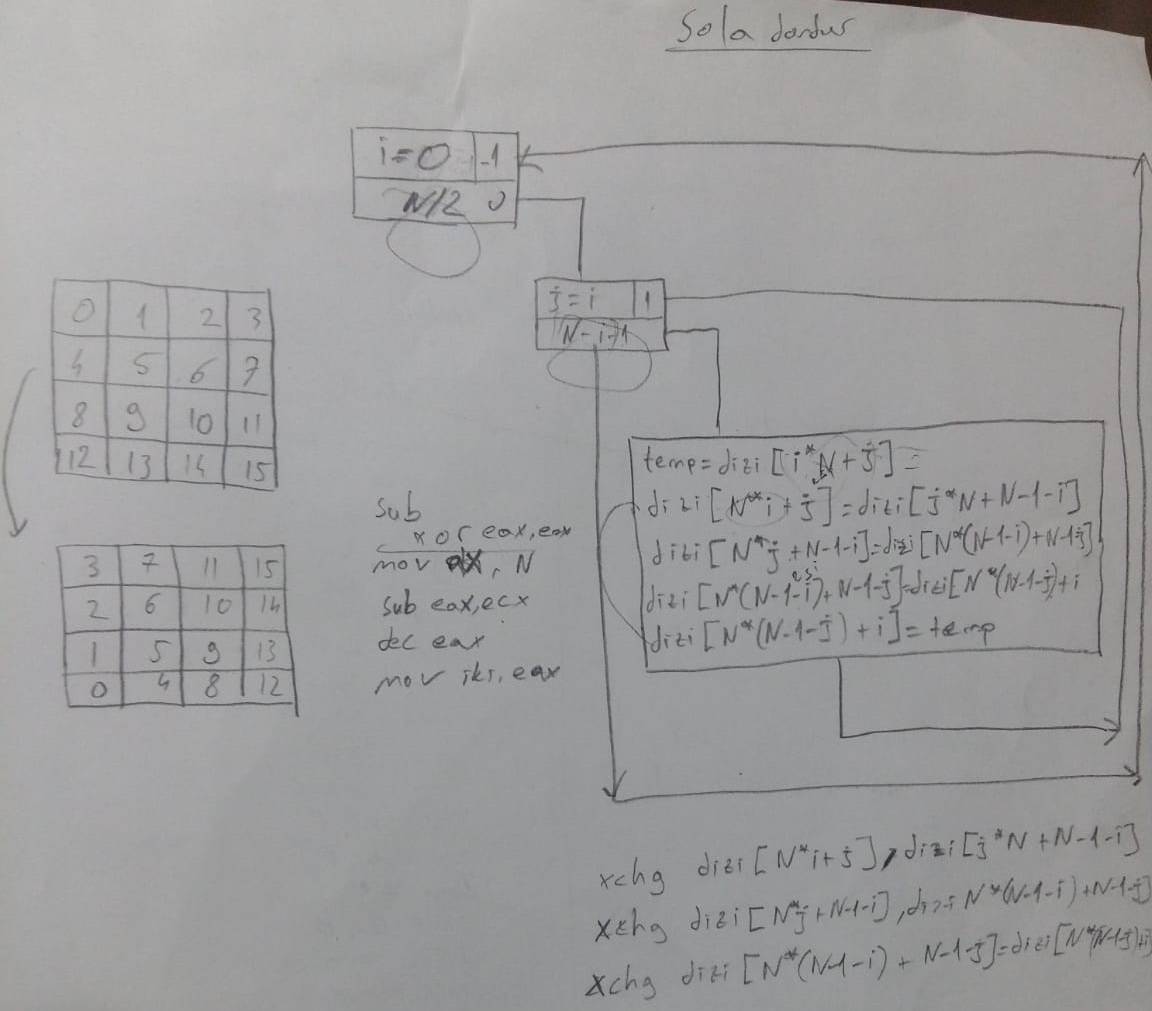 Sola döndür
i=0 -1
N/2 0
j=i 1
N-i-1
0 1 2 3
4 5 6 7
8 9 10 11
12 13 14 15
3 7 11 15
2 6 10 14
1 5 9 13
0 4 8 12
sub
xor eax,eax
mov , N
sub eax,ecx
dec eax
mov iki, eax
temp=dizi [i*N+j] =
dizi [N*i+j]=dizi[j*N+N-1-i]
dizi [N*j+N-1-i]=dizi[N*(N-1-i)+N-1-j]
dizi [N*(N-1-i)+N-1-j]=dizi[N*(N-1-j)+i
dizi [N*(N-1-j)+i]=temp
xchg dizi [N*i+j], dizi[j*N+N-1-i]
xchg dizi [N*j+N-1-i], dizi N*(N-1-i)+N-1-j]
xchg dizi [N*(N-1-i) + N-1-j]=dizi[N*(N-1-j)+i]